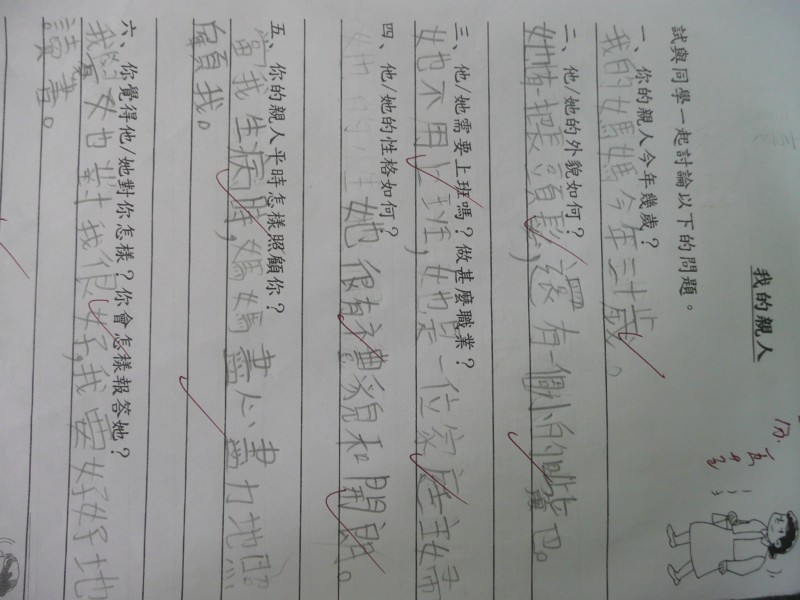 我的親人
試與同學一起討論以下的問題。
一、你的親人今年幾歲？
我的媽媽今年三十歲。
二、他/她的外貌如何？
一把頭髮，還有一個小的嘴巴。
三、他/她需要上班嗎？做甚麼職業？
她不用上班，她是一位家庭主婦
四、他/她的性格如何？
她很有禮貌和開朗。
五、你的親人平時怎樣照顧你？
當我生病時，媽媽盡心、盡力地照
顧我。
六、你覺得他/她對你怎樣？你會怎樣報答她？
我對我很好，我要好好地
讀書。